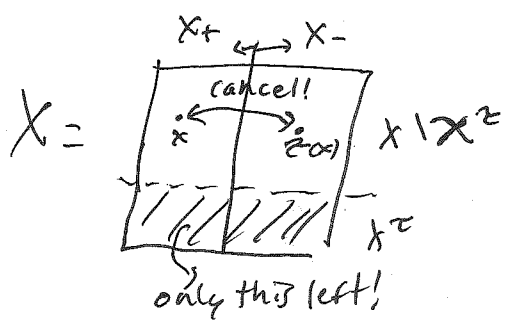 X+ ↔ X-
cancel!
X =
x
τ(x)
X \ X^τ
X^τ
only this left!